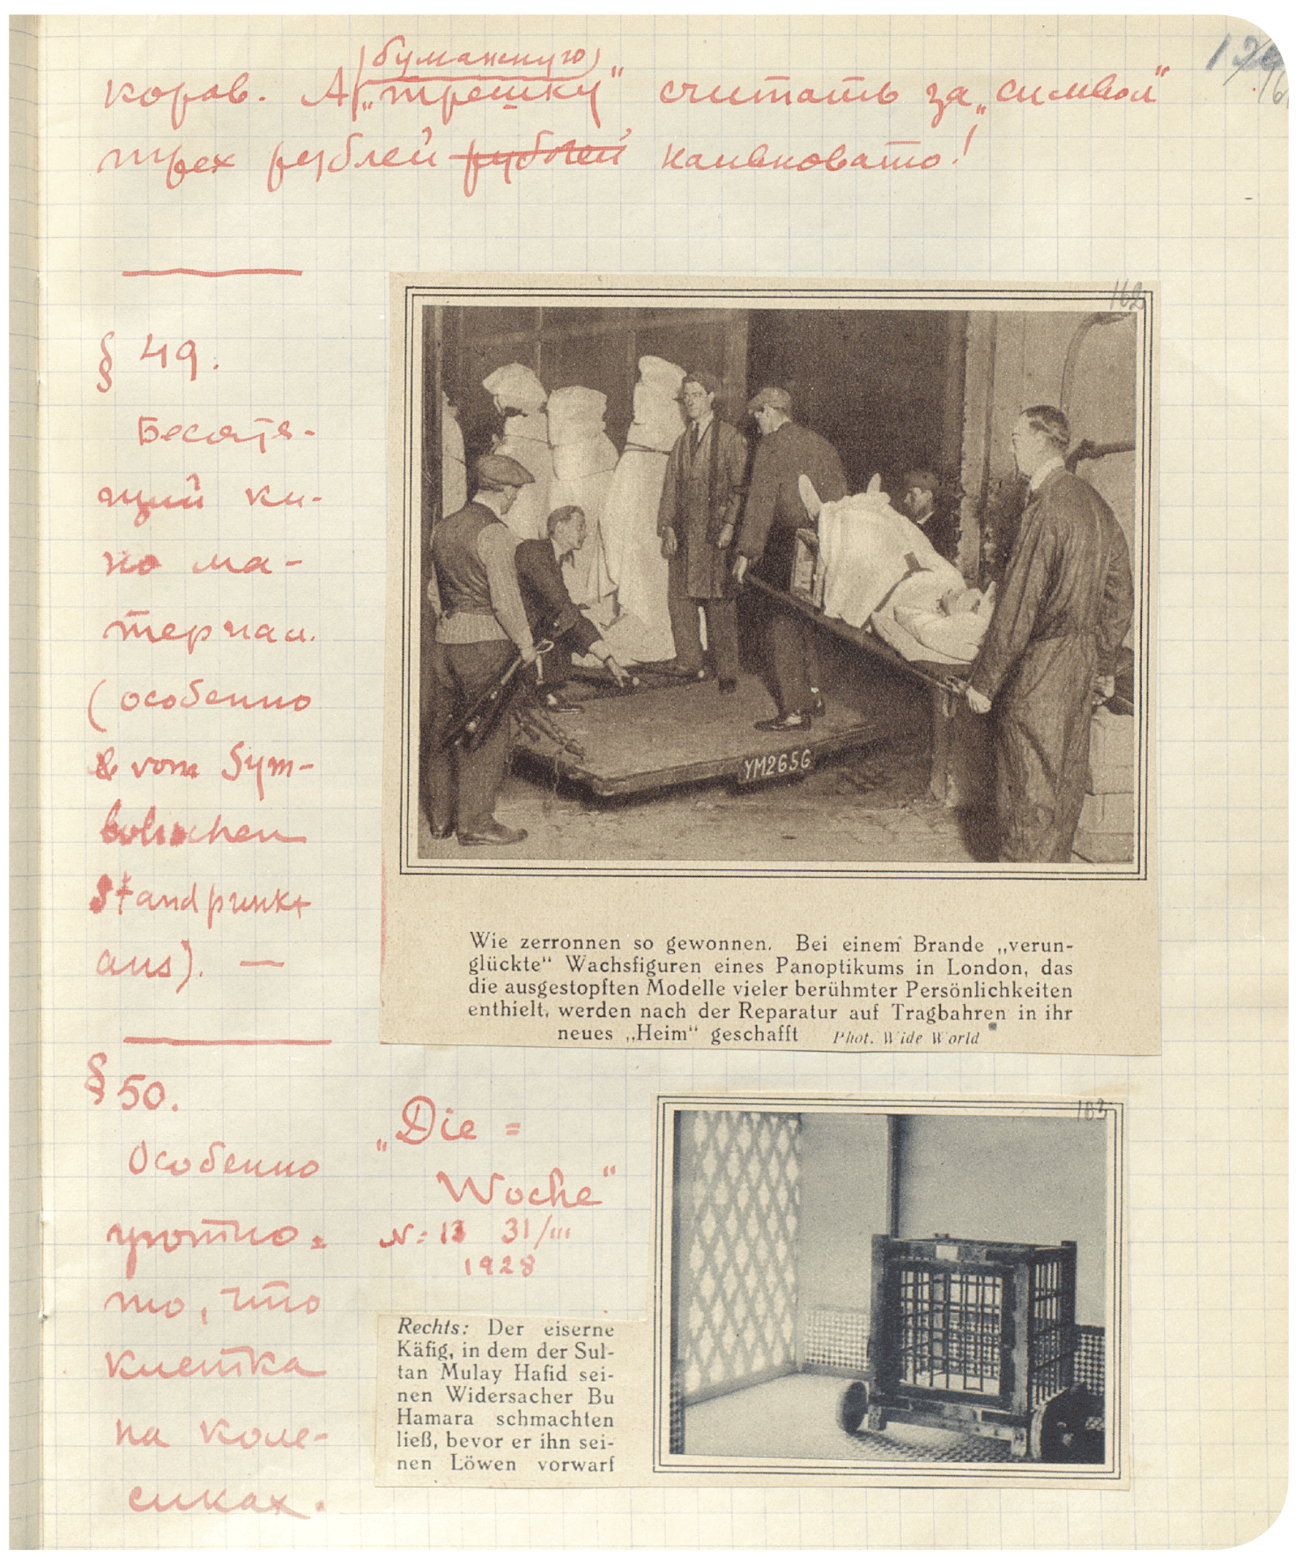 (бумажную)
коров. А „трешку“ считать за „символ“
трех рублей рублей наивновато!
162
§ 49.
Бесстя-
щий ки-
но ма-
териал.
(особенно
vom Sym-
bolischen
Standpunkt
aus). —
YM2656
Wie zerronnen so gewonnen. Bei einem Brande „verun-
glückte“ Wachsfiguren eines Panoptikums in London, das
die ausgestopften Modelle vieler berühmter Persönlichkeiten
enthielt, werden nach der Reparatur auf Tragbahren in ihr
neues „Heim“ geschafft Phot. Wide World
§ 50.
Особенно
уютно=
то, что
клетка
на коле-
сиках.
„Die =
Woche“
N= 13 31/III
1928
163
Rechts: Der eiserne
Käfig, in dem der Sul-
tan Mulay Hafid sei-
nen Widersacher Bu
Hamara schmachten
ließ, bevor er ihn sei-
nen Löwen vorwarf